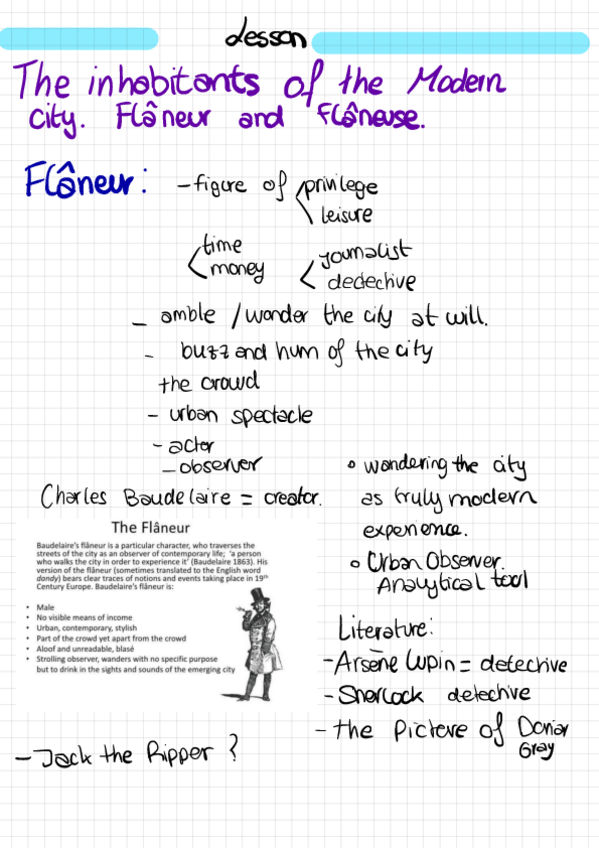 Lesson
The inhabitants of the Modern
City. Flâneur and Flâneuse.
Flâneur: - figure of privilege
leisure
time
money
journalist
dedechive
- amble / wander the city at will.
- buzz and hum of the city
the crowd
- urban spectacle
- actor
- observer
Charles Baudelaire = creator.
The Flâneur
Baudelaire's flâneur is a particular character, who traverses the
streets of the city as an observer of contemporary life; 'a person
who walks the city in order to experience it' (Baudelaire 1863). His
version of the flâneur (sometimes translated to the English word
dandy) bears clear traces of notions and events taking place in 19th
Century Europe. Baudelaire's flâneur is:
• Male
• No visible means of income
• Urban, contemporary, stylish
• Part of the crowd yet apart from the crowd
• Aloof and unreadable, blasé
• Strolling observer, wanders with no specific purpose
but to drink in the sights and sounds of the emerging city
- Jack the Ripper ?
o wandering the city
as truly modern
experience.
o Urban Observer.
Analytical tool
Literature:
- Arsène Lupin = detective
- Sherlock detective
- the Picture of Dorian
Gray